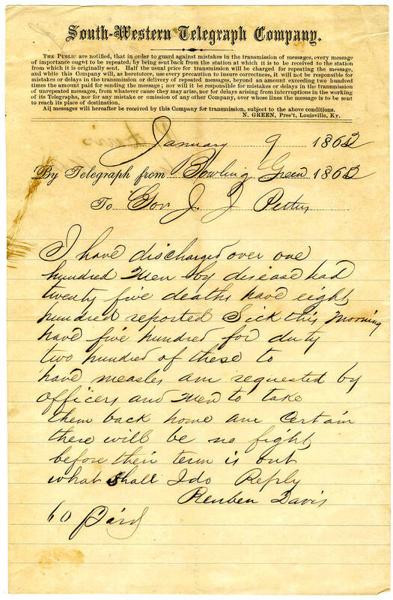 South-Western Telegraph Company.
THE PUBLIC are notified, that in order to guard against mistakes in the transmission of messages, every message
of importance ought to be repeated, by being sent back from the station at which it is to be received to the station
from which it is originally sent. Half the usual price for transmission will be charged for repeating the message,
and while this Company will, as heretofore, use every precaution to insure correctness, it will not be responsible for
mistakes or delays in the transmission or delivery of repeated messages, beyond an amount exceeding two hundred
times the amount paid for sending the message; nor will it be responsible for mistakes or delays in the transmission
of unrepeated messages, from whatever cause they may arise, nor for delays arising from interruptions in the working
of its Telegraphs, nor for any mistake or omission of any other Company, over whose lines the message is to be sent
to reach its place of destination.
All messages will hereafter be received by this Company for transmission, subject to the above conditions.
N. GREEN, Pres't, Louisville, Ky.
January 9 1862
By Telegraph from Bowling Green 1862
To Gov. J. J. Pettus
I have discharged over one
hundred Men by disease had
twenty five deaths have eight
hundred reported Sick this Morning
have five hundred for duty
two hundred of these to
have measles am requested by
officers and Men to take
them back home am Certain
there will be no fight
before their term is out
what Shall I do Reply
Reuben Davis
60 Paid